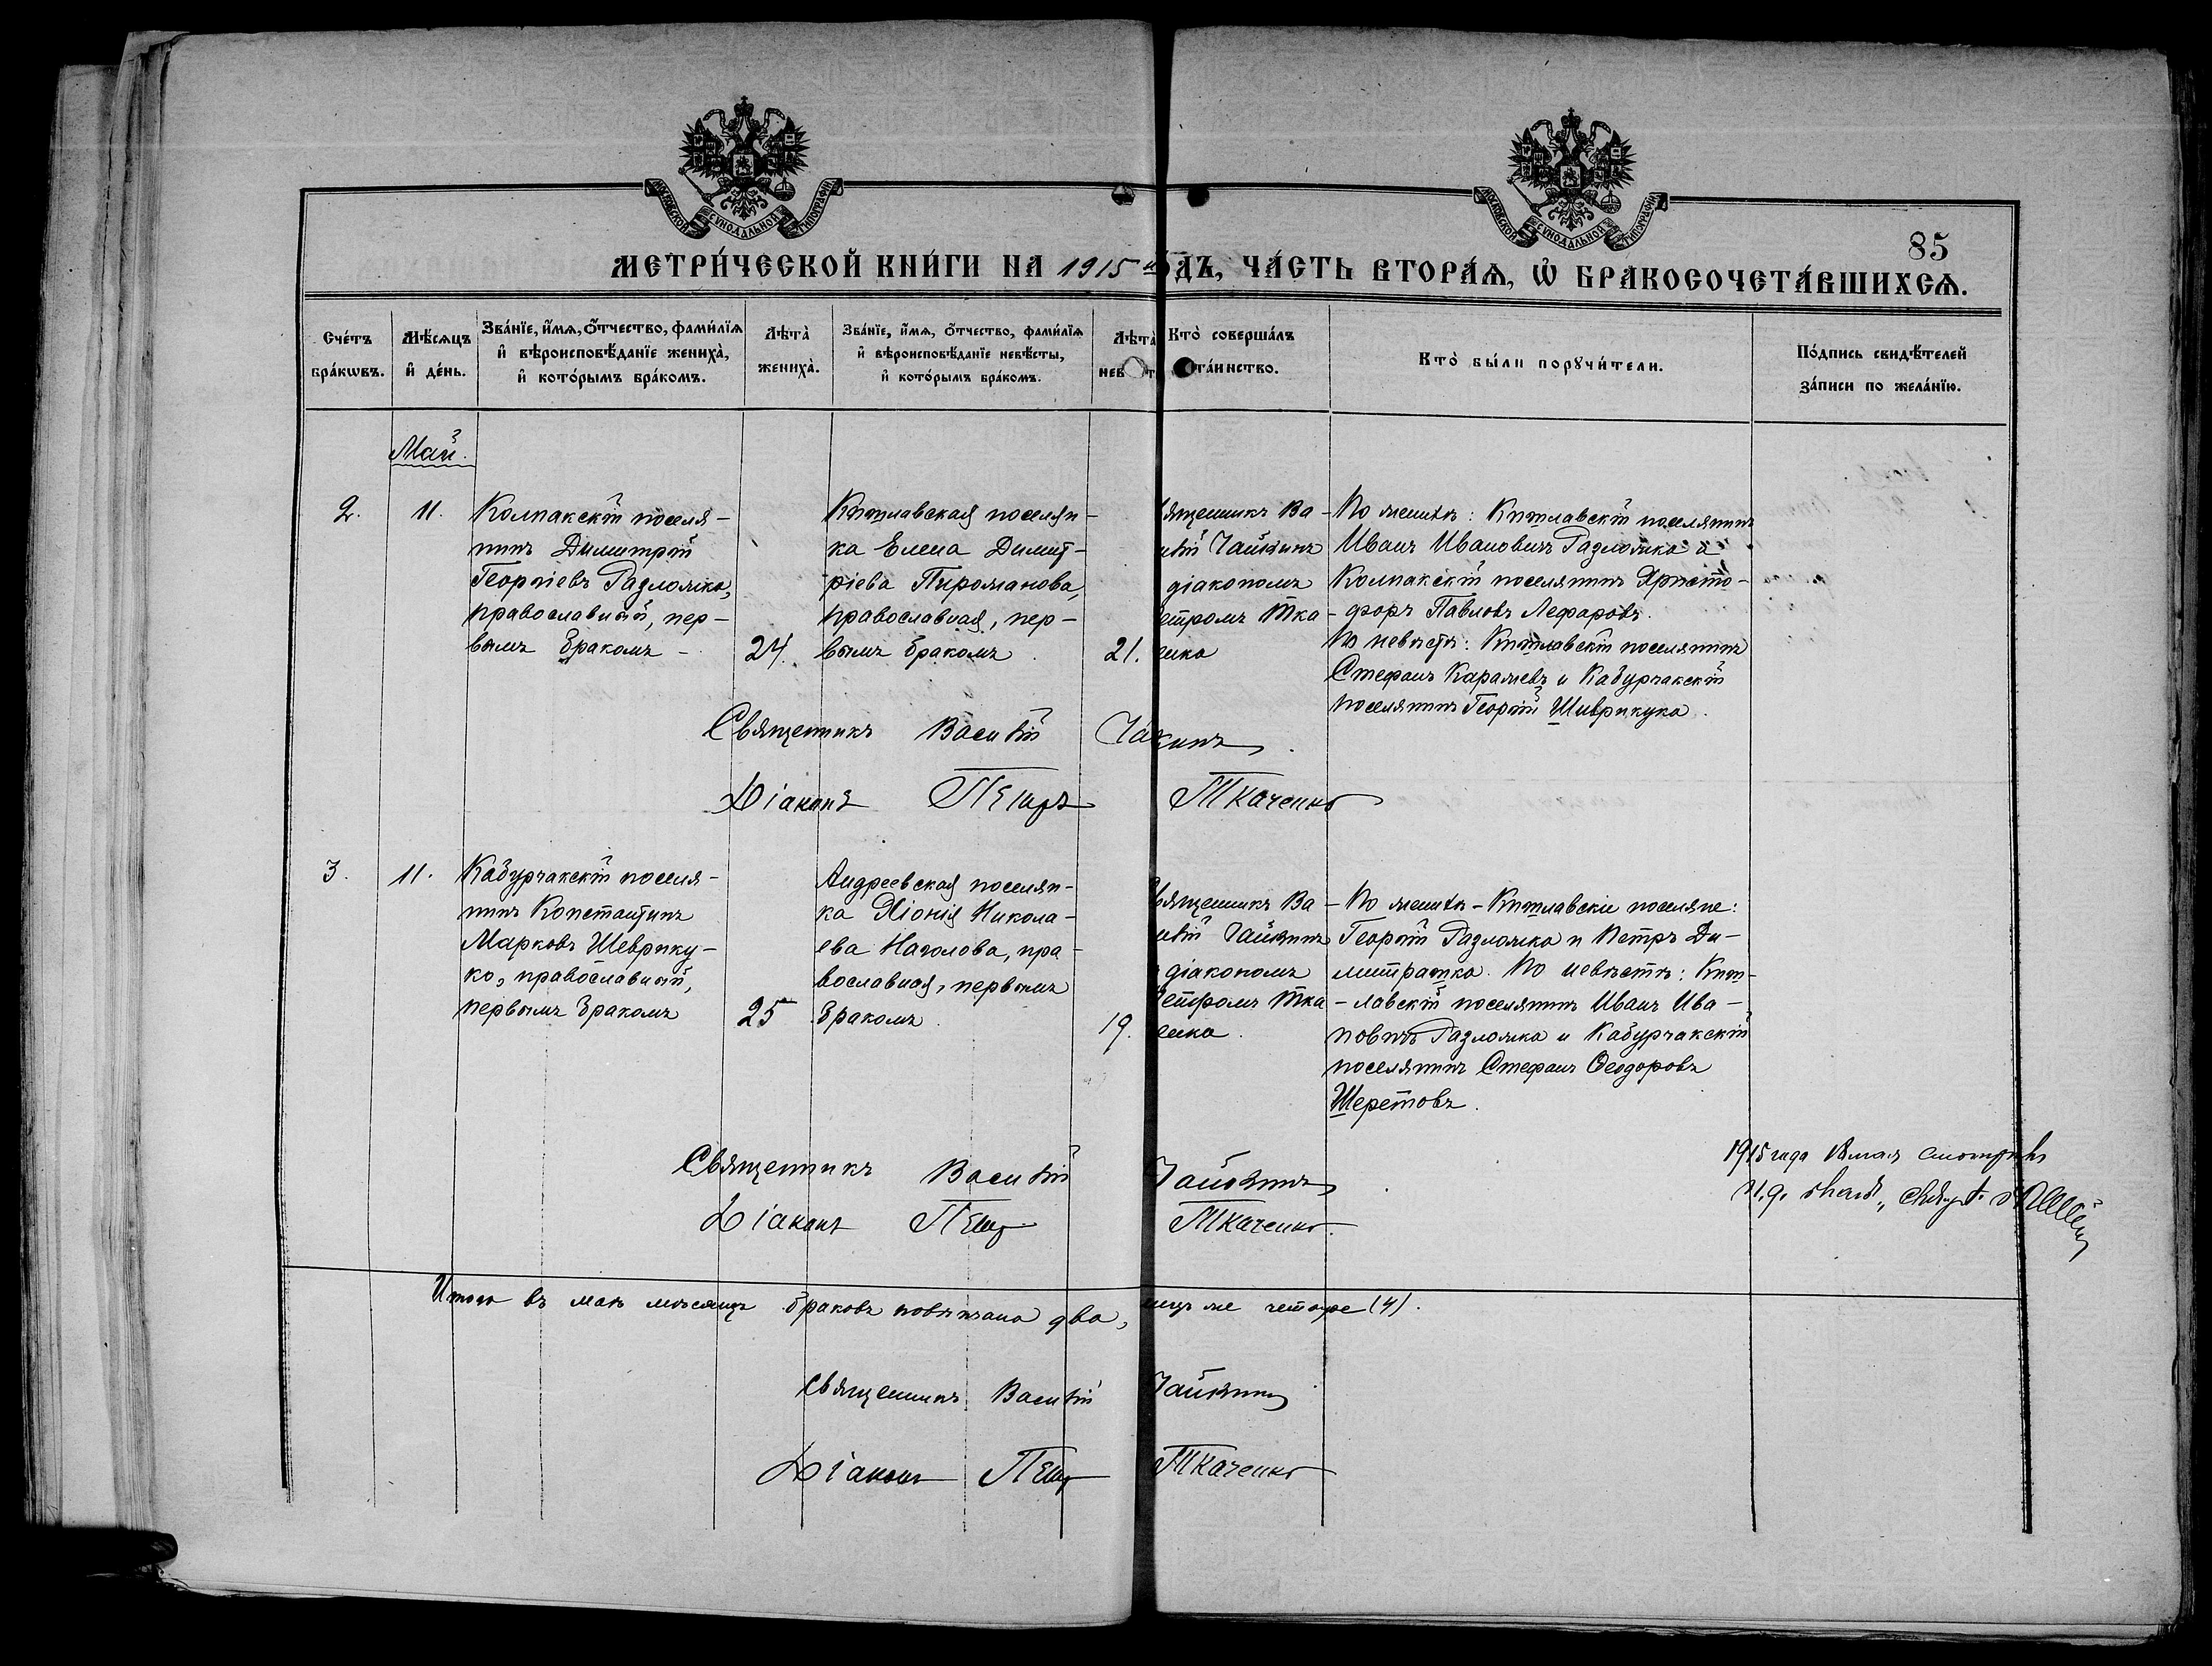 МОСКОВСКОЙ СѴНОДАЛЬНОЙ ТИПОГРАФІИ
МОСКОВСКОЙ СѴНОДАЛЬНОЙ ТИПОГРАФІИ
85
МЕТРИ́ЧЕСКОЙ КНИ́ГИ НА 1915 ДЪ, ЧА́СТЬ ВТОРА́Ѧ, Ѿ БРАКОСОЧЕТА́ВШИХСѦ.
Сче́тъ
бра́кѡвъ.
Мѣ́сѧцъ
и҆ де́нь.
Зва́нїе, и҆́мѧ, ѻ҆́тчество, фами́лїѧ
и҆ вѣроисповѣ́данїе жениха̀,
и҆ кото́рымъ бра́комъ.
Лѣ́та̀
жениха̀.
Зва́нїе, и҆́мѧ, ѻ҆́тчество, фами́лїѧ
и҆ вѣроисповѣ́данїе невѣ́сты,
и҆ кото́рымъ бра́комъ.
Лѣ́та̀
нев т
Кто̀ соверша́лъ
та́инство.
Кто̀ бы́ли порꙋчи́тели.
По́дпись свидѣ́телей
за́писи по жела́нїю.
Май.
2.
11.
Колпакскій поселя-
нинъ Димитрій
Георгіевъ Газложко,
православный, пер-
вымъ бракомъ -
24.
Китлавская поселян-
ка Елена Димит-
ріева Пироманова,
православная, пер-
вымъ бракомъ.
21.
ященникъ Ва-
илій Чайкинъ
діакономъ
етромъ Тка-
енко
По женихѣ: Китлавскій поселянинъ
Иванъ Ивановичъ Газложко и
Колпакскій поселянинъ Христо-
форъ Павловъ Лефаровъ.
По невѣстѣ: Китлавскій поселянинъ
Стефанъ Каражевъ и Кабурчакскій
поселянинъ Георгій Шиврикука.
Священникъ Василій Чайкинъ.
Діаконъ Петръ Ткаченко
3.
11.
Кабурчакскій поселя-
нинъ Константинъ
Марковъ Шеврику-
ко, православный,
первымъ бракомъ
25
Андреевская поселян-
ка Хіонія Никола-
ева Наголова, пра-
вославная, первымъ
бракомъ.
19.
вященникъ Ва-
илій Чайкинъ
діакономъ
етромъ Тка-
енко.
По женихѣ - Китлавскіе поселяне:
Георгій Газложко и Петръ Ди-
митратко. По невѣстѣ: Кит-
лавскій поселянинъ Иванъ Ива-
новичъ Газложко и Кабурчакскій
поселянинъ Стефанъ Ѳеодоровъ
Шеретовъ.
Священникъ Василій Чайкинъ.
Діаконъ Петръ Ткаченко.
1915 года мая смотрѣлъ
Итого въ маѣ мѣсяцѣ браковъ повѣнчано два, лицъ же четыре (4).
Священникъ Василій Чайкинъ
Діаконъ Петръ Ткаченко